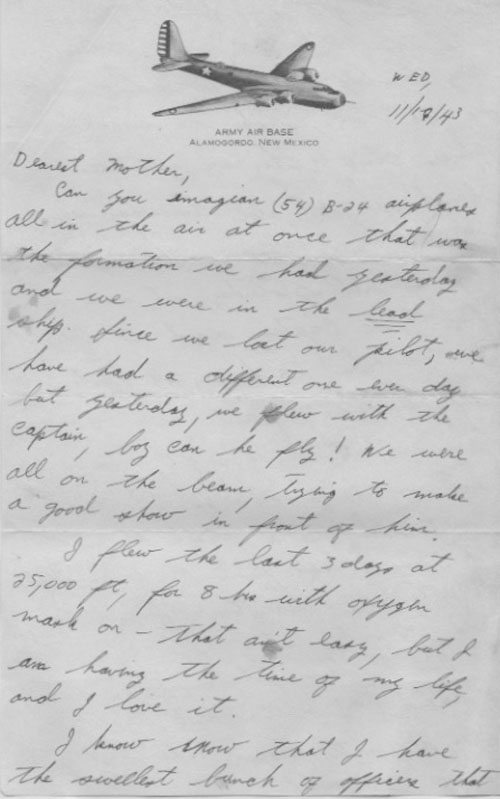 WED,
11/18/43
ARMY AIR BASE
ALAMOGORDO, NEW MEXICO
Dearest Mother,
Can you imagian (54) B-24 airplanes
all in the air at once that was
the formation we had yesterday
and we were in the lead
ship. Since we lost our pilot, we
have had a different one ever day
but yesterday, we flew with the
captain, boy can he fly! We were
all on the beam, trying to make
a good show in front of him.
I flew the last 3 days at
25,000 ft, for 8 hrs with oxygen
mask on - That ain't easy, but I
am having the time of my life,
and I love it.
I know know that I have
the swellest bunch of officers that